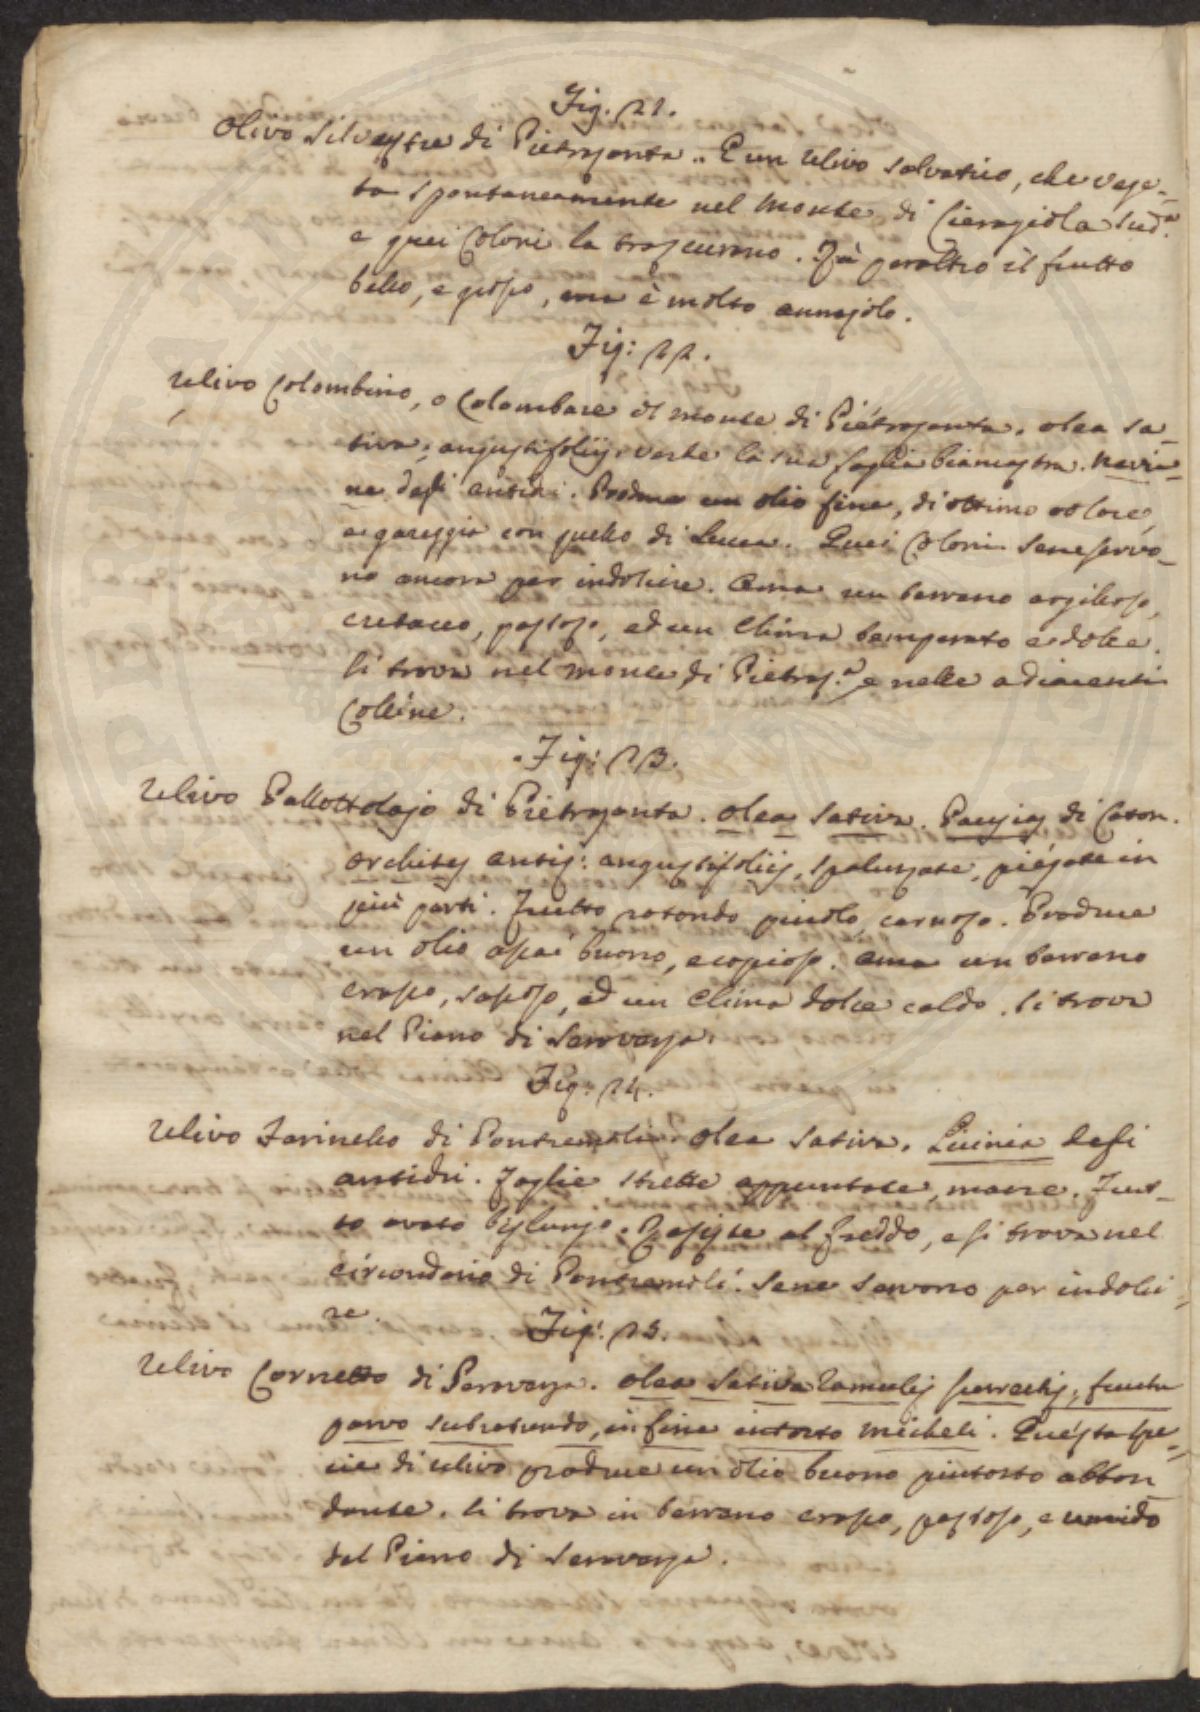 Fig. 21.
Olivo Silvestre di Pietrasanta. È un Ulivo salvatico, che vege-
ta spontaneamente nel Monte di Cieragiola sud.ª
e quei Coloni la trascurano. Fà peraltro il frutto
bello, e grosso, ma è molto annajolo.
Fig: 22.
Ulivo Colombino, o Colombare il monte di Pietrasanta. olea sa-
tiva, angustifolijs. Verde la sua foglia biancastra. Nevia-
na degl' antichi. Produce un olio fine, di ottimo odore,
e gareggia con quello di Lucca. Quei Coloni se ne servo-
no ancora per indolcire. Ama un terreno argilloso,
cretaceo, pastoso, ed un Clima temperato e dolce.
Si trova nel monte di Pietras.ª e nelle adiacenti
Colline.
Fig: 23.
Ulivo Pallottolajo di Pietrasanta. olea sativa. Pausia di Caton.
orchites antiq: angustifolijs, spalunzate, piegate in
più parti. Frutto rotondo piccolo, carnoso. Produce
un olio assai buono, e copioso. Ama un terreno
crasso, sassoso, ed un Clima dolce caldo. Si trova
nel Piano di Seravezza.
Fig: 24.
Ulivo Farinello di Pontremoli. Olea Sativa. Licinia degli
antichi. Foglie strette appuntate, macre. Frut-
to ovato bislungo. Resiste al freddo, e si trova nel
circondario di Pontremoli. Se ne servono per indolci-
re.
Fig: 25.
Ulivo Cornetto di Seravezza. olea sativa ramulis perrectis, fructu
parvo subrotundo, in fine intorto micheli. Questa spe-
cie di ulivo produce un olio buono piutosto abbon
dante. Si trova in terreno crasso, pastoso, e umido
del Piano di Seravezza.